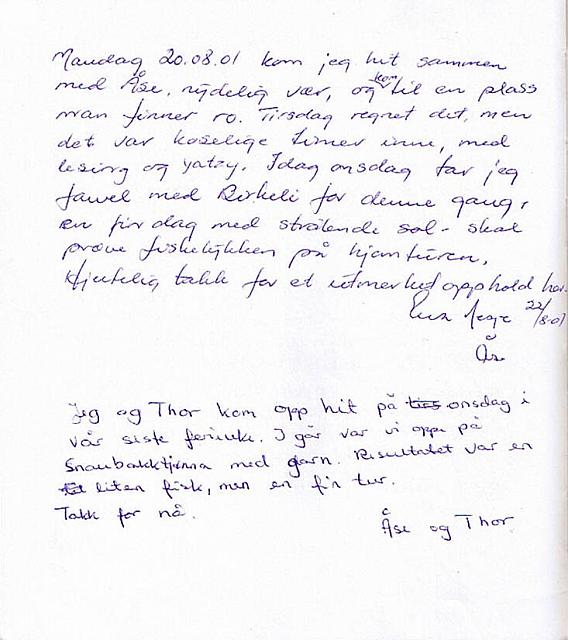 Mandag 20.08.01 kom jeg hit sammen
med Åse, nydelig vær, og kom til en plass
man finner ro. Tirsdag regnet det, men
det var koselige timer inne, med
lesing og yatzy. Idag onsdag tar jeg
farvel med Birkeli for denne gang,
en fin dag med strålende sol - skal
prøve fiskelykken på hjemturen.
Hjertelig takk for et utmerket opphold her.
22/8-01
Ås.
Jeg og Thor kom opp hit på tirs onsdag i
vår siste ferieuke. I går var vi oppe på
Snaubakktjønna med garn. Resultatet var en
liten fisk, men en fin tur.
Takk for nå.
Åse og Thor